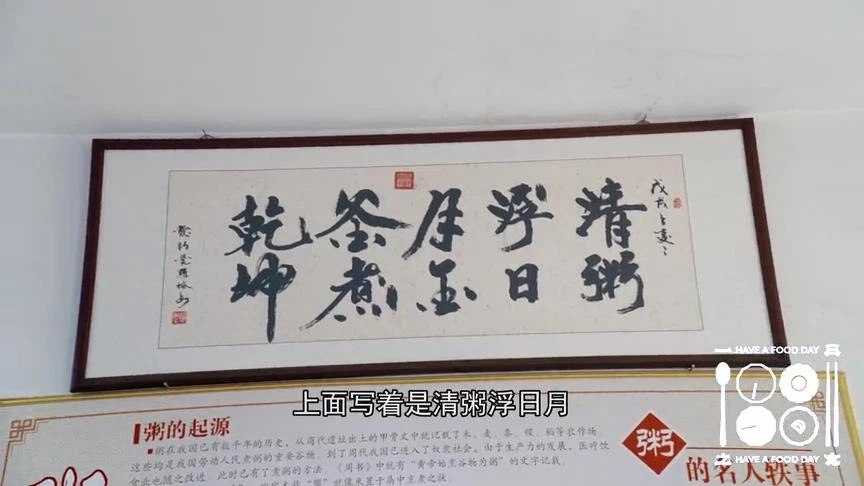 清粥
浮日
月玉
釜煮
乾坤
戊戌
HAVE A FOOD DAY
上面写着是清粥浮日月
粥的起源
粥在我国已有数千年的历史，从商代遗址出土的甲骨文中就记载了禾、麦、黍、稷、稻等农作物
这些均是我国劳动人民煮粥的重要谷物。到了周代我国已进入了奴隶社会，由于生产力的发展，医疗饮
食业也随之改进，此时已有了煮粥的方法。《周书》中就有“黄帝始烹谷物为粥”的文字记载。
粥
的名人轶事
HAVE A FOOD DAY